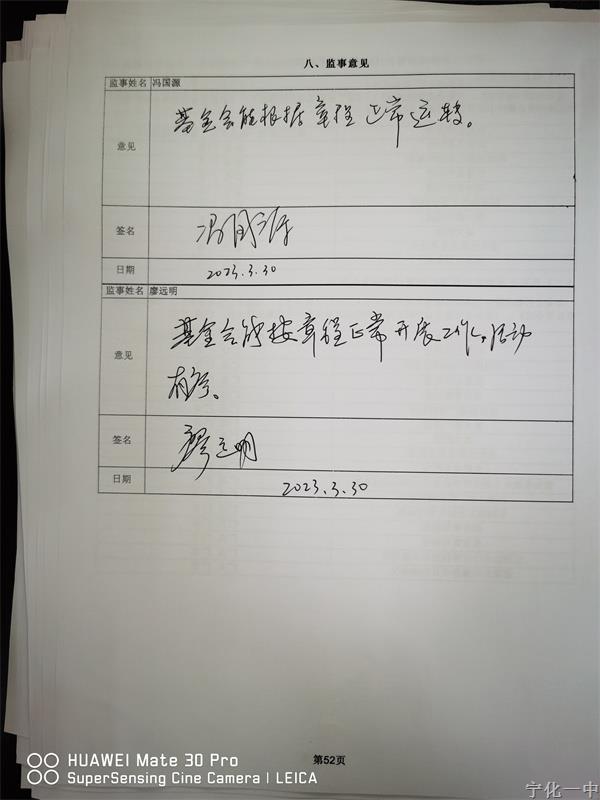 八、监事意见
监事姓名 冯国源
意见
基金会能根据章程正常运转。
签名 冯国源
日期 2023.3.30
监事姓名 廖远明
意见
基金会能按章程正常开展工作,活动
有序。
签名 廖远明
日期 2023.3.30
第52页
HUAWEI Mate 30 Pro
SuperSensing Cine Camera | LEICA
宁化一中